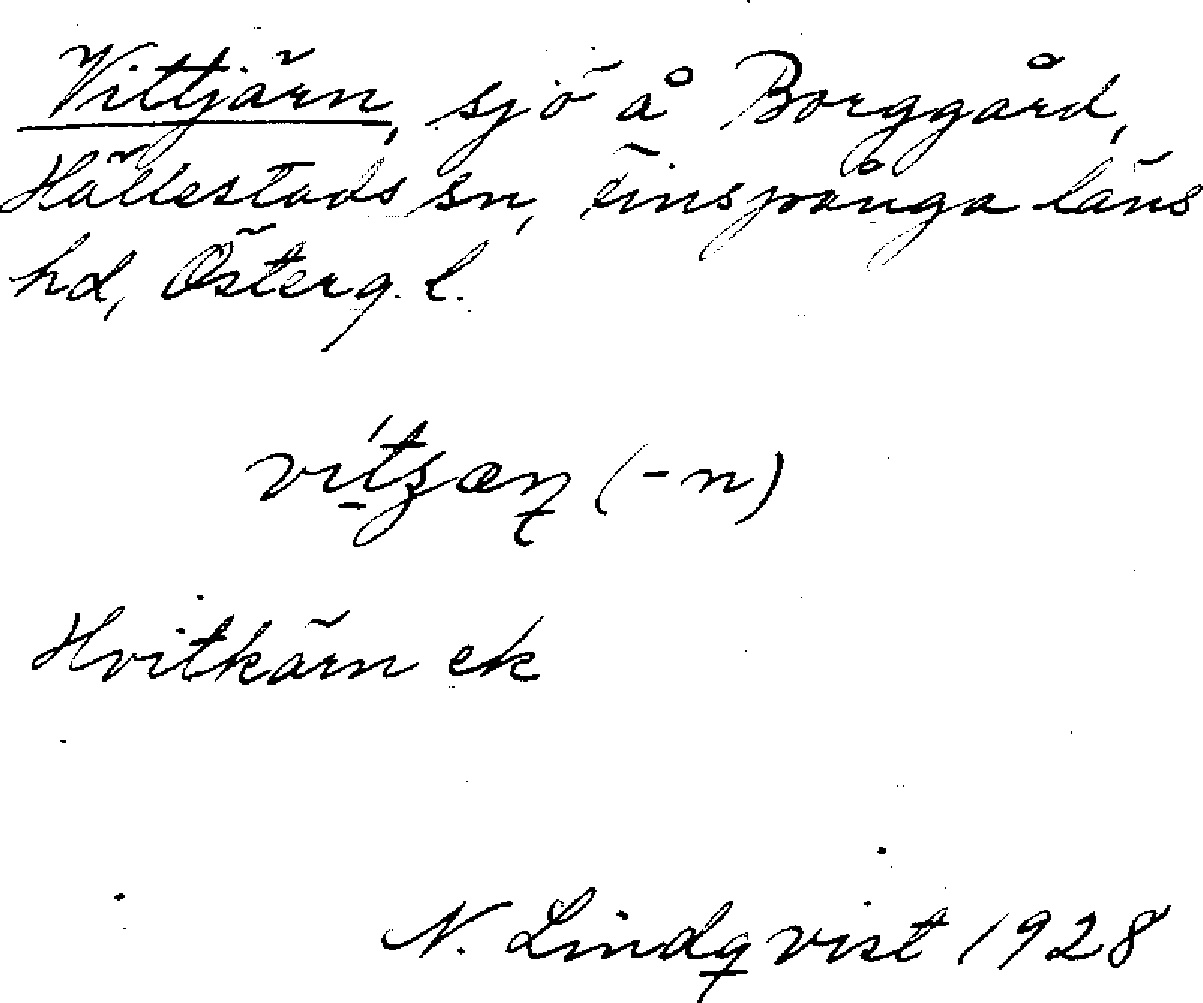 Vittjärn, sjö å Borggård,
Hällestads sn, Finspånga läns
hd, Österg. l.
(-n)
Hvitkärn ek
N. Lindqvist 1928